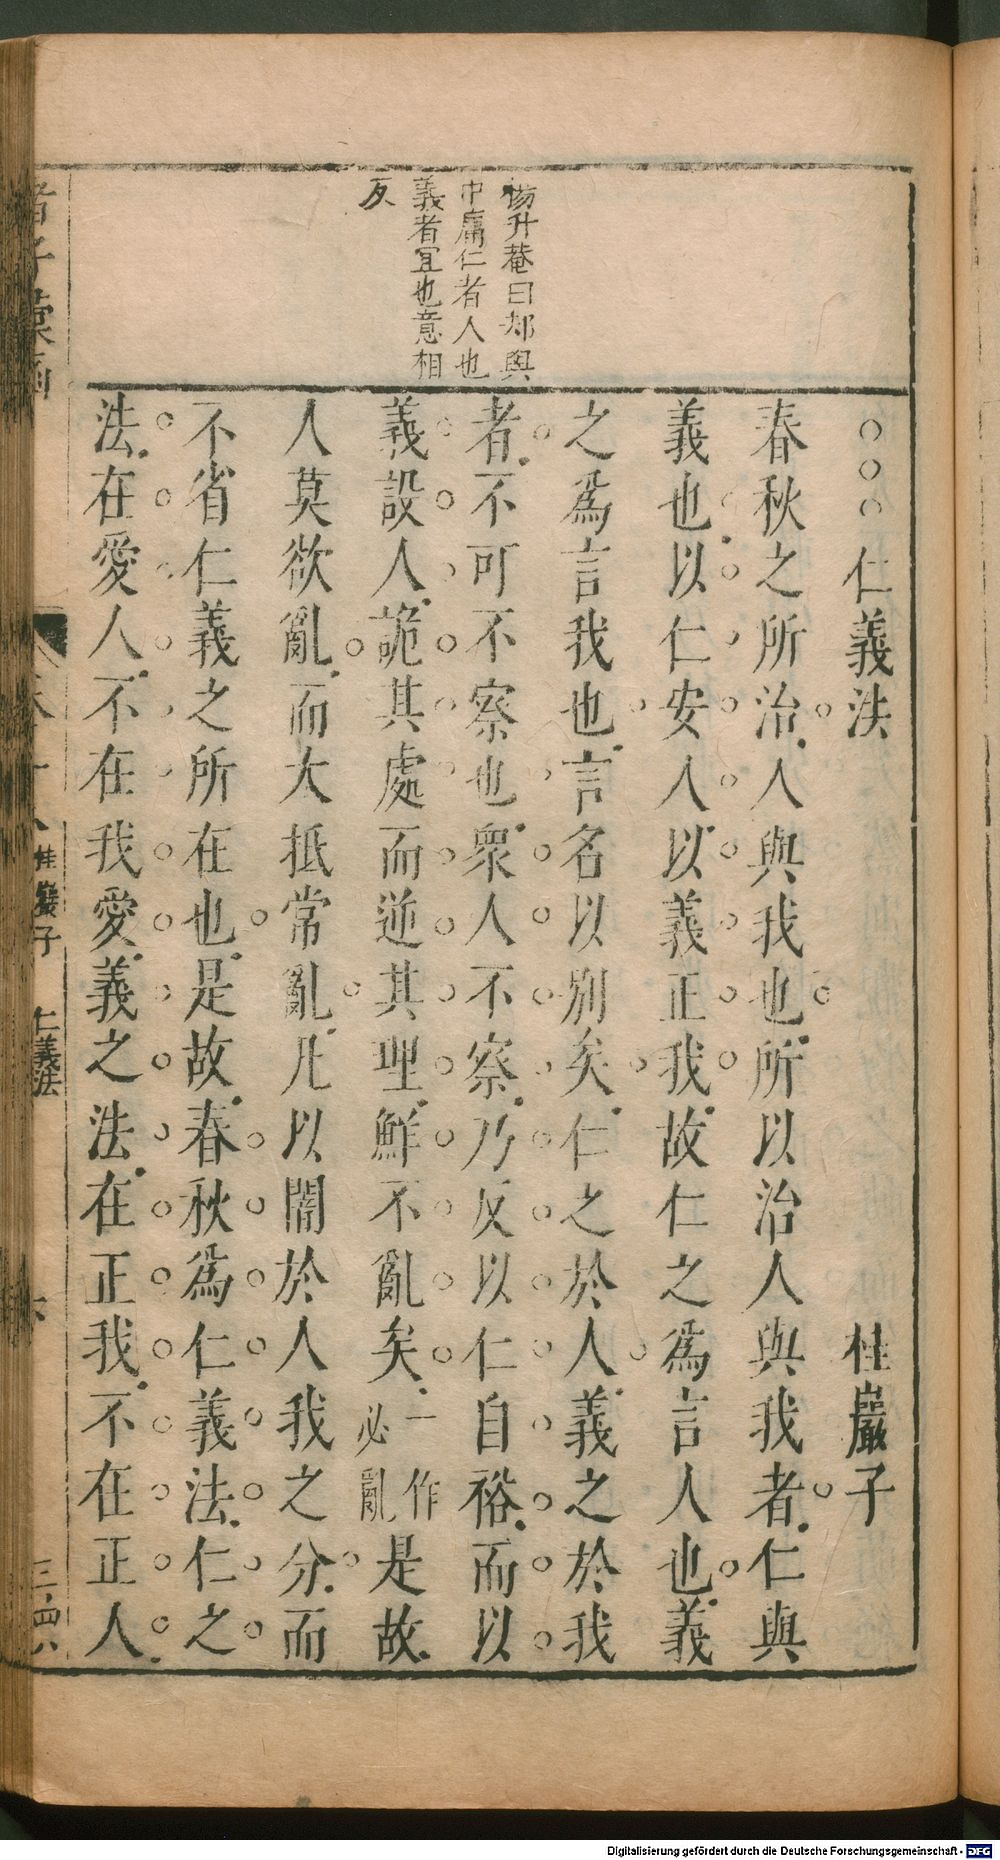 楊升菴曰却與
中庸仁者人也
義者宜也意相
反
○○○仁義法　桂巖子
春秋之所治人與我也所以治人與我者仁與
義也以仁安人以義正我故仁之爲言人也義
之爲言我也言名以別矣仁之於人義之於我
者不可不察也衆人不察乃反以仁自裕而以
義設人詭其處而逆其理鮮不亂矣一作必亂是故
人莫欲亂而大抵常亂凡以闇於人我之分而
不省仁義之所在也是故春秋爲仁義法仁之
法在愛人不在我愛義之法在正我不在正人
桂巖子　仁義法
Digitalisierung gefördert durch die Deutsche Forschungsgemeinschaft - DFG